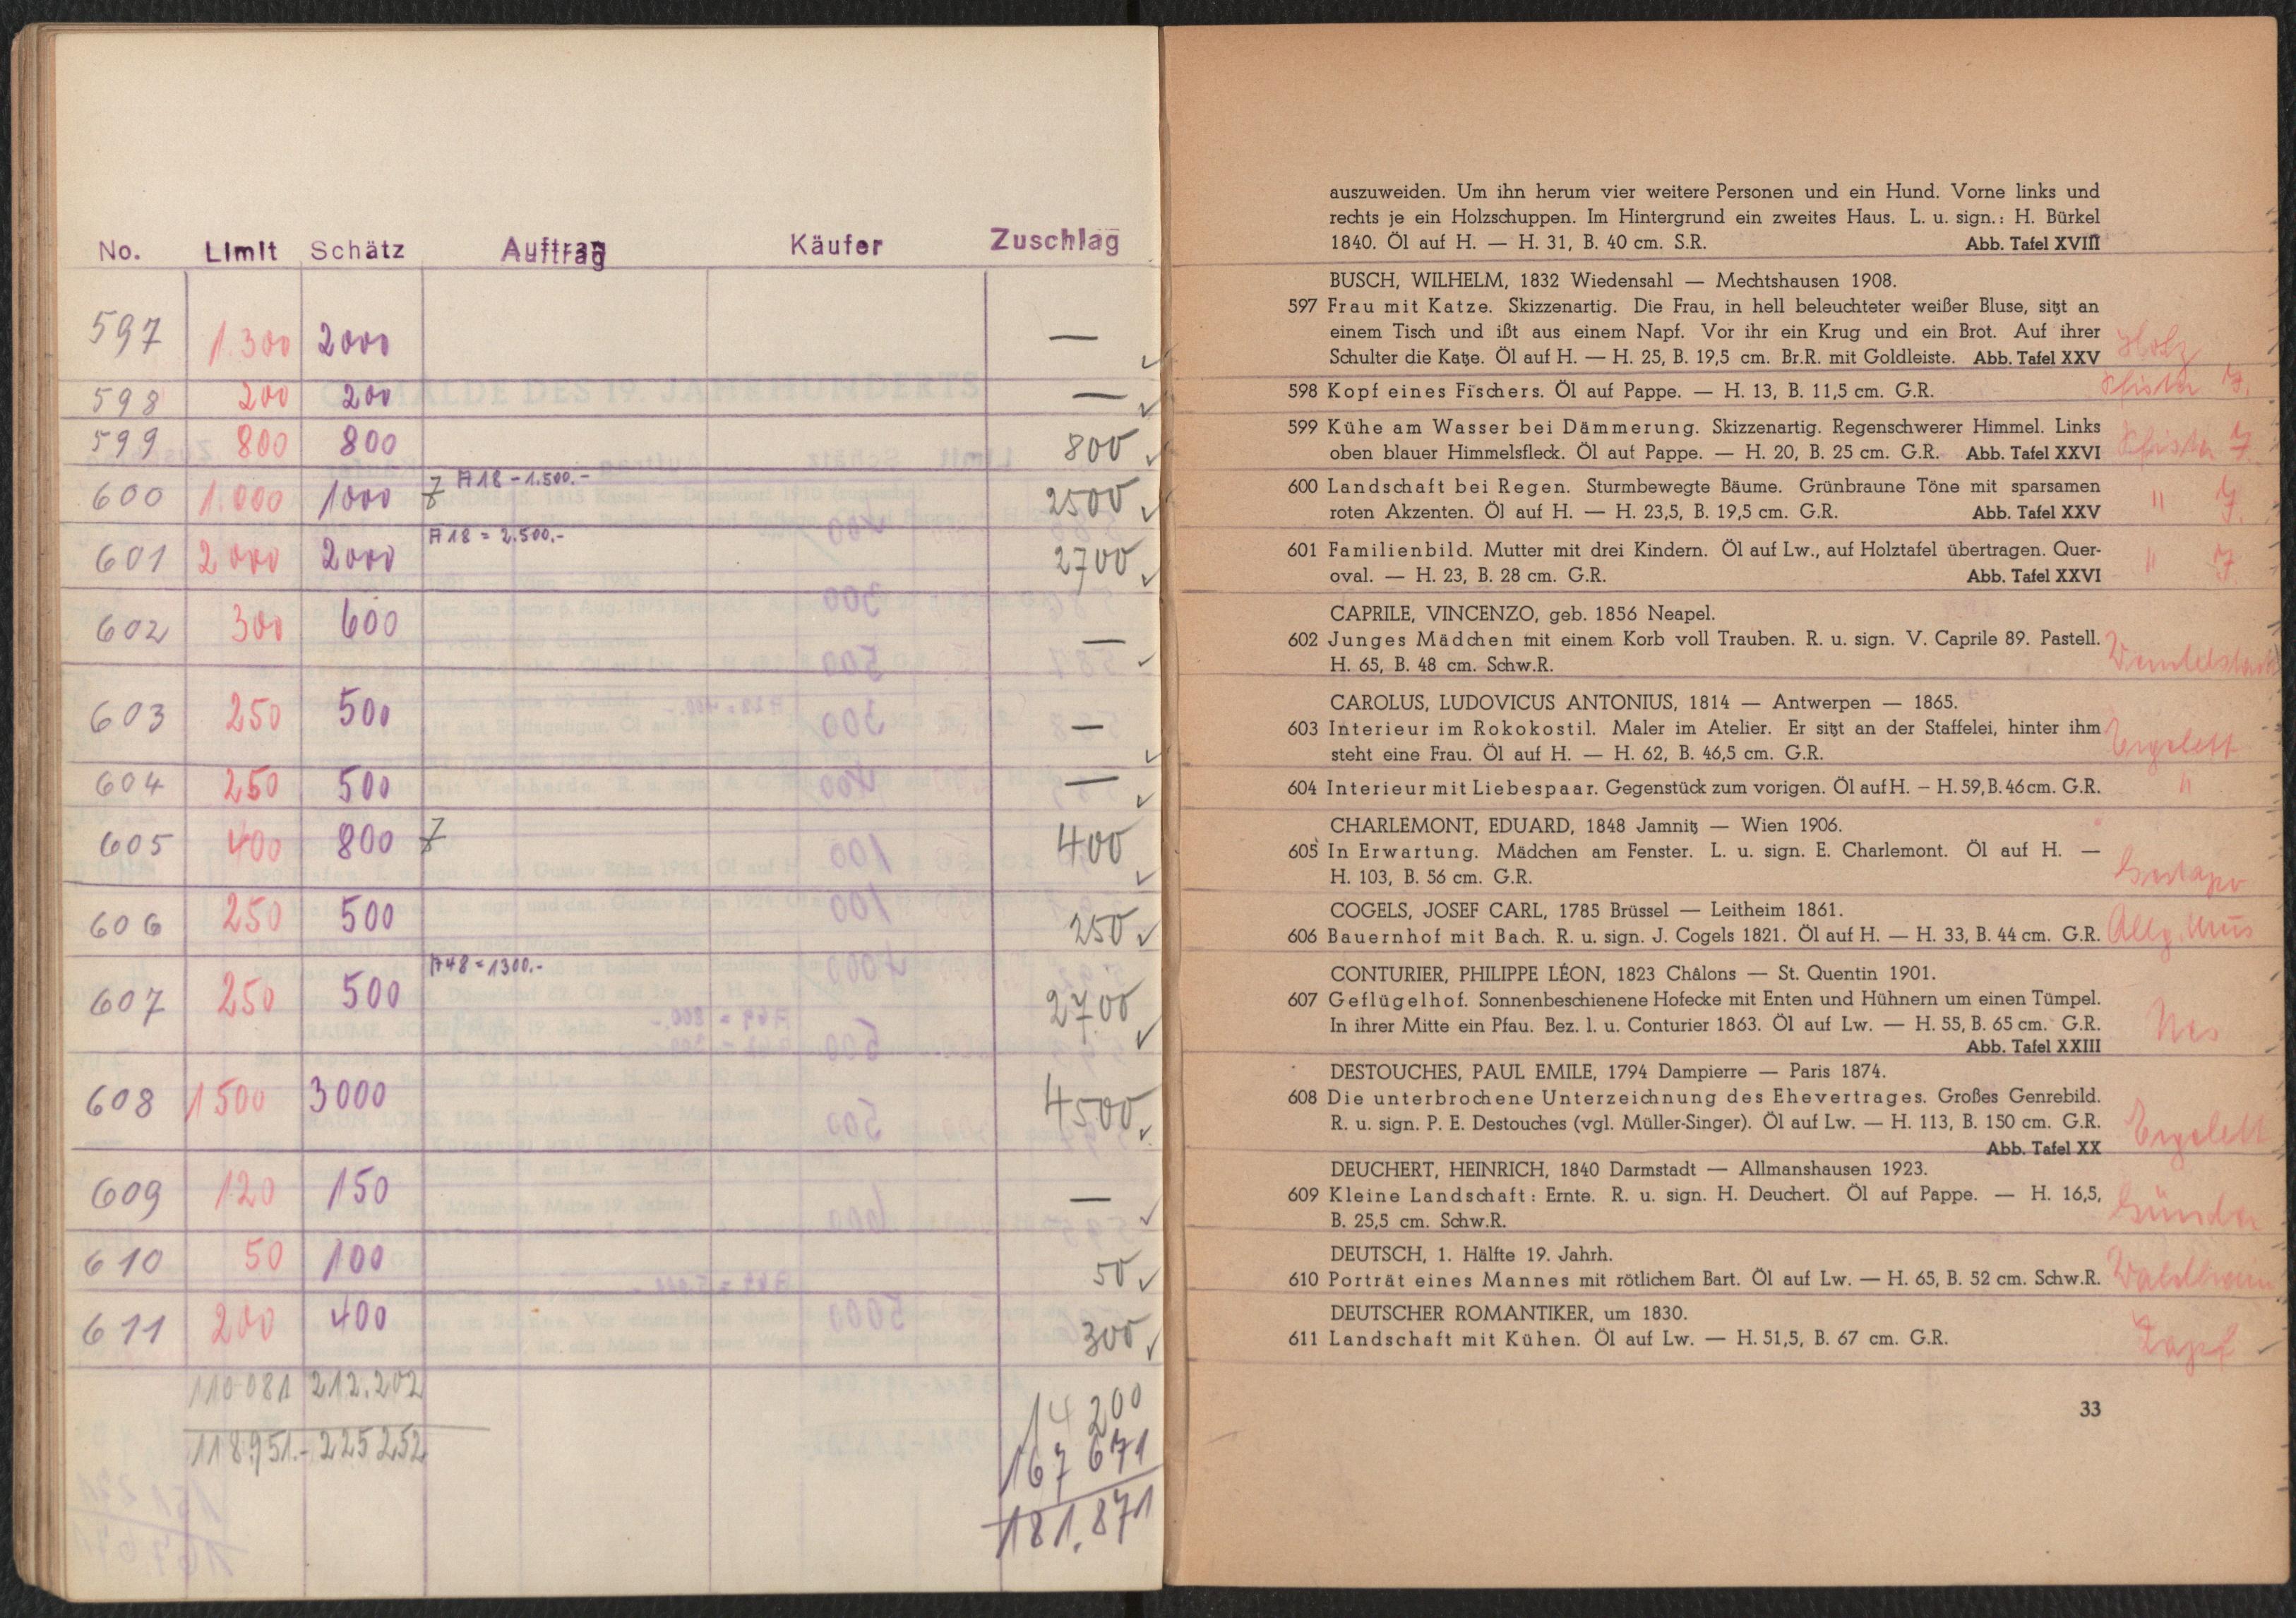 No. Limit Schätz Auftrag Käufer Zuschlag
597 1.300 2000 —
598 200 200 —
599 800 800 800
600 1.000 1000 7 A18 - 1.500.- 2500
601 2000 2000 A18 = 2.500.- 2700
602 300 600 —
603 250 500 —
604 250 500 —
605 400 800 7 400
606 250 500 250
607 250 500 A48 = 1300.- 2700
608 1500 3000 4500
609 120 150 —
610 50 100 50
611 200 400 300
110 081 212.202
118.951.- 225252
14 200
167 671
181.871
auszuweiden. Um ihn herum vier weitere Personen und ein Hund. Vorne links und
rechts je ein Holzschuppen. Im Hintergrund ein zweites Haus. L. u. sign.: H. Bürkel
1840. Öl auf H. — H. 31, B. 40 cm. S.R. Abb. Tafel XVIII
BUSCH, WILHELM, 1832 Wiedensahl — Mechtshausen 1908.
597 Frau mit Katze. Skizzenartig. Die Frau, in hell beleuchteter weißer Bluse, sitzt an
einem Tisch und ißt aus einem Napf. Vor ihr ein Krug und ein Brot. Auf ihrer
Schulter die Katze. Öl auf H. — H. 25, B. 19,5 cm. Br.R. mit Goldleiste. Abb. Tafel XXV
Holz
598 Kopf eines Fischers. Öl auf Pappe. — H. 13, B. 11,5 cm. G.R.
Pfister J.
599 Kühe am Wasser bei Dämmerung. Skizzenartig. Regenschwerer Himmel. Links
oben blauer Himmelsfleck. Öl auf Pappe. — H. 20, B. 25 cm. G.R. Abb. Tafel XXVI
Pfister J.
600 Landschaft bei Regen. Sturmbewegte Bäume. Grünbraune Töne mit sparsamen
roten Akzenten. Öl auf H. — H. 23,5, B. 19,5 cm. G.R. Abb. Tafel XXV
" J.
601 Familienbild. Mutter mit drei Kindern. Öl auf Lw., auf Holztafel übertragen. Quer-
oval. — H. 23, B. 28 cm. G.R. Abb. Tafel XXVI
" J
CAPRILE, VINCENZO, geb. 1856 Neapel.
602 Junges Mädchen mit einem Korb voll Trauben. R. u. sign. V. Caprile 89. Pastell.
H. 65, B. 48 cm. Schw.R.
CAROLUS, LUDOVICUS ANTONIUS, 1814 — Antwerpen — 1865.
603 Interieur im Rokokostil. Maler im Atelier. Er sitzt an der Staffelei, hinter ihm
steht eine Frau. Öl auf H. — H. 62, B. 46,5 cm. G.R.
604 Interieur mit Liebespaar. Gegenstück zum vorigen. Öl auf H. – H. 59, B. 46 cm. G.R.
"
CHARLEMONT, EDUARD, 1848 Jamnitz — Wien 1906.
605 In Erwartung. Mädchen am Fenster. L. u. sign. E. Charlemont. Öl auf H. —
H. 103, B. 56 cm. G.R.
Gestapo
COGELS, JOSEF CARL, 1785 Brüssel — Leitheim 1861.
606 Bauernhof mit Bach. R. u. sign. J. Cogels 1821. Öl auf H. — H. 33, B. 44 cm. G.R.
Allg. Mus
CONTURIER, PHILIPPE LÉON, 1823 Châlons — St. Quentin 1901.
607 Geflügelhof. Sonnenbeschienene Hofecke mit Enten und Hühnern um einen Tümpel.
In ihrer Mitte ein Pfau. Bez. l. u. Conturier 1863. Öl auf Lw. — H. 55, B. 65 cm. G.R.
Abb. Tafel XXIII
DESTOUCHES, PAUL EMILE, 1794 Dampierre — Paris 1874.
608 Die unterbrochene Unterzeichnung des Ehevertrages. Großes Genrebild.
R. u. sign. P. E. Destouches (vgl. Müller-Singer). Öl auf Lw. — H. 113, B. 150 cm. G.R.
Abb. Tafel XX
DEUCHERT, HEINRICH, 1840 Darmstadt — Allmanshausen 1923.
609 Kleine Landschaft: Ernte. R. u. sign. H. Deuchert. Öl auf Pappe. — H. 16,5,
B. 25,5 cm. Schw.R.
Günder
DEUTSCH, 1. Hälfte 19. Jahrh.
610 Porträt eines Mannes mit rötlichem Bart. Öl auf Lw. — H. 65, B. 52 cm. Schw.R.
DEUTSCHER ROMANTIKER, um 1830.
611 Landschaft mit Kühen. Öl auf Lw. — H. 51,5, B. 67 cm. G.R.
Zapf
33